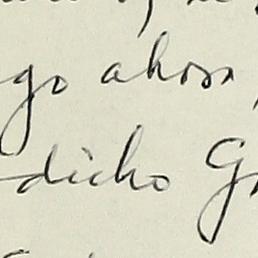 go ahora
dicho G